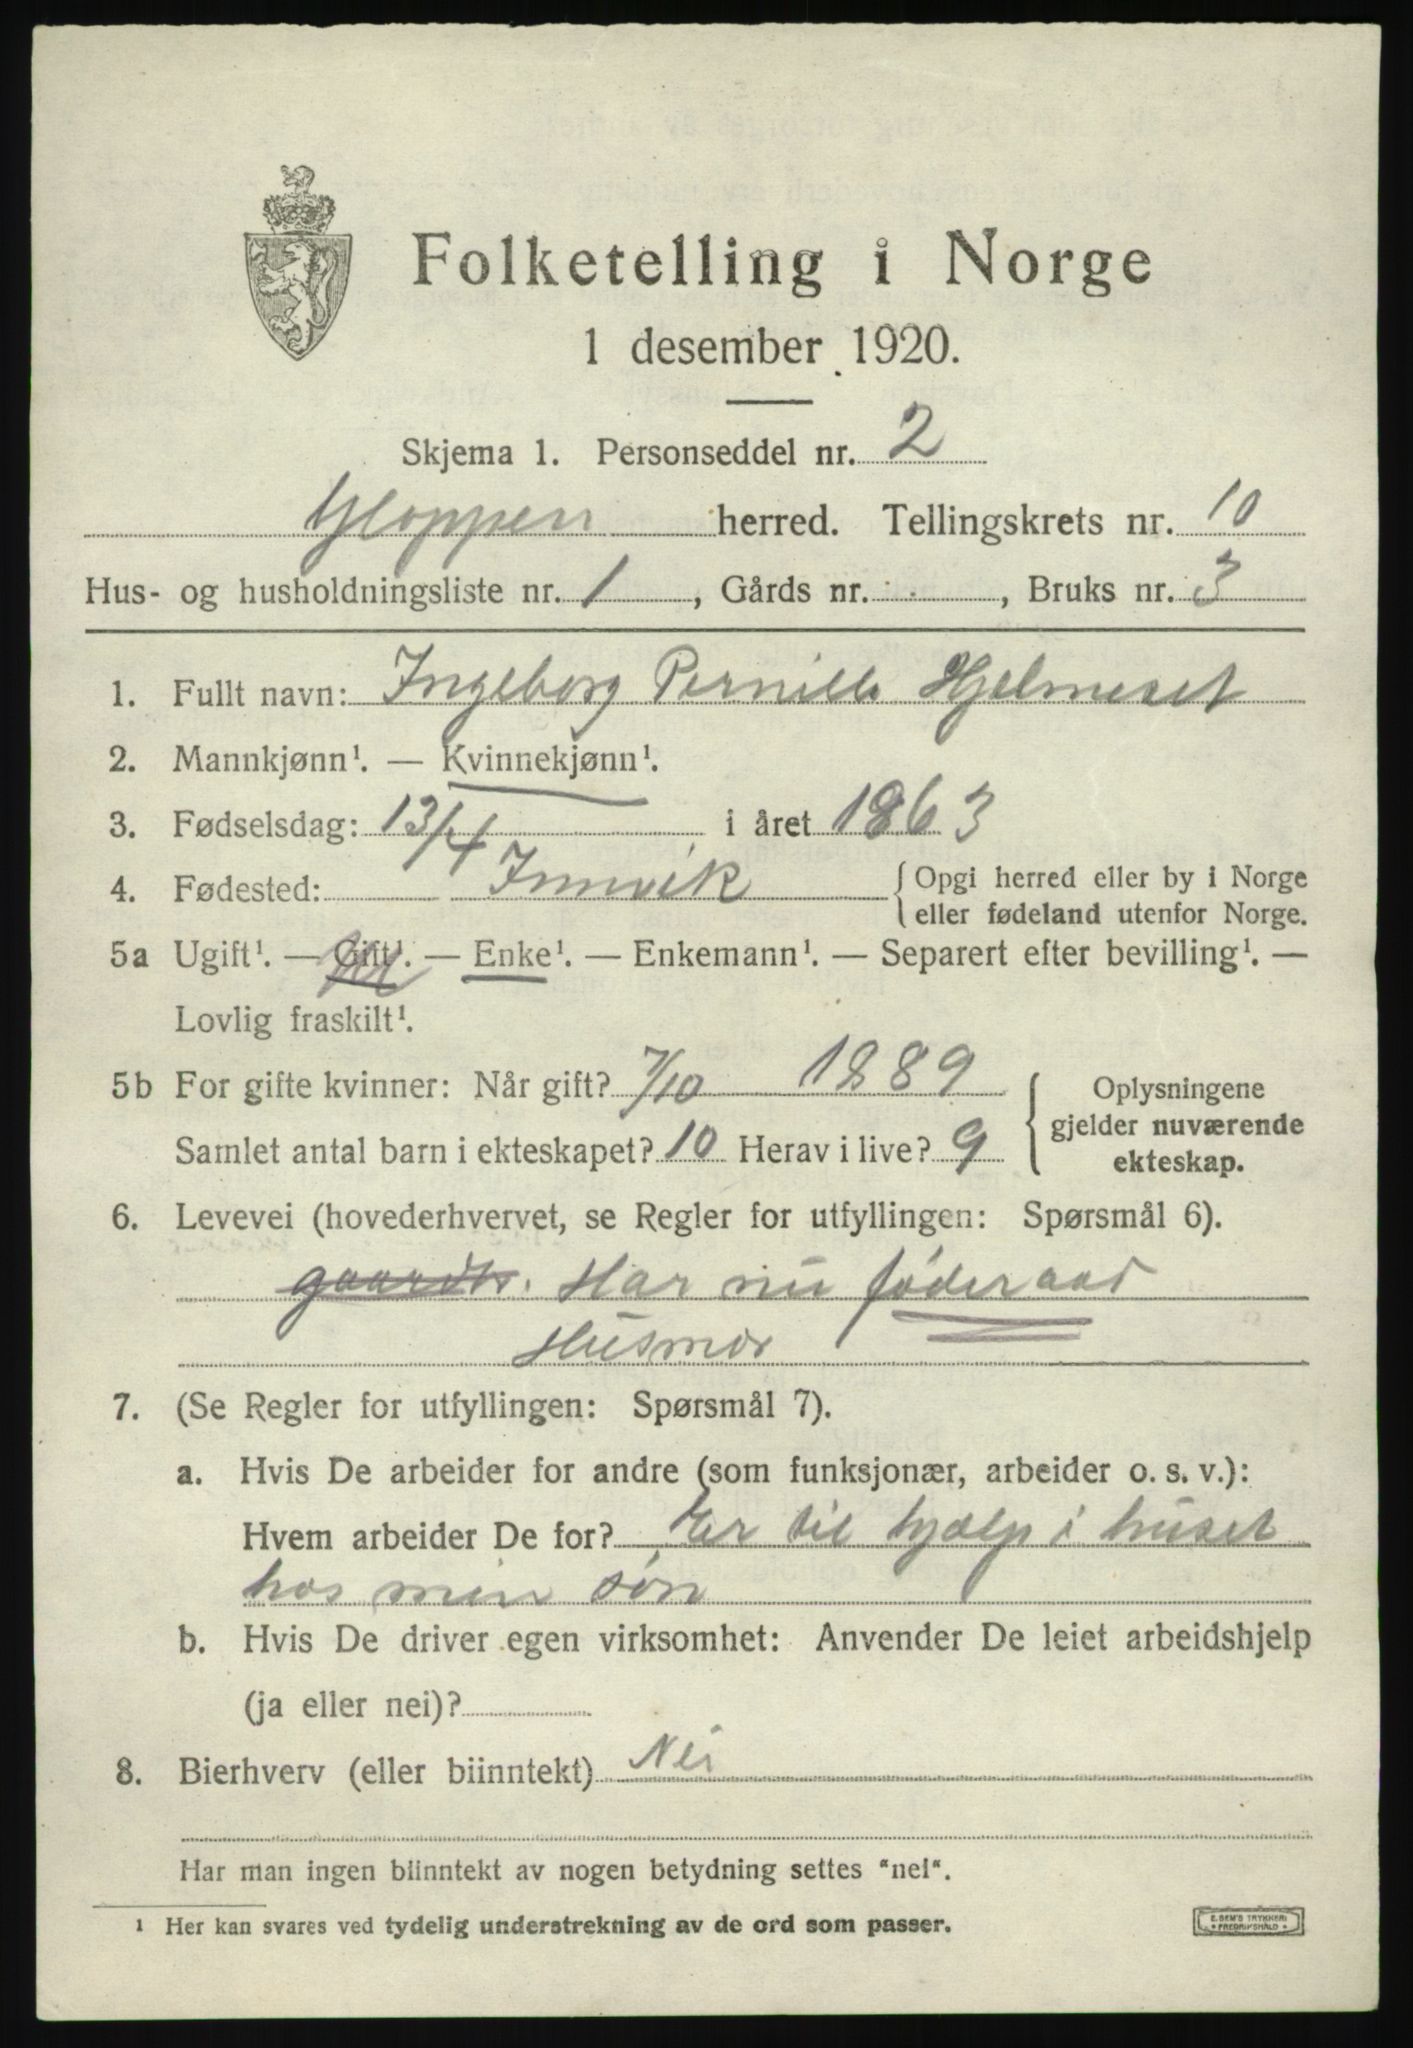 Folketelling i Norge
1 desember 1920.
Skjema 1. Personseddel nr. 2
Gloppen herred. Tellingskrets nr. 10
Hus- og husholdningsliste nr. 1, Gårds nr. , Bruks nr. 3
1. Fullt navn: Ingeborg Pernille Hjelmeset
2. Mannkjønn¹. — Kvinnekjønn¹.
3. Fødselsdag: 13/4 i året 1863
4. Fødested: Innvik {Opgi herred eller by i Norge
eller fødeland utenfor Norge.
5a Ugift¹. — Gift¹. — Enke¹. — Enkemann¹. — Separert efter bevilling¹. —
Lovlig fraskilt¹.
5b For gifte kvinner: Når gift? 7/10 1889
Samlet antal barn i ekteskapet? 10 Herav i live? 9
Oplysningene
gjelder nuværende
ekteskap.
6. Levevei (hovederhvervet, se Regler for utfyllingen: Spørsmål 6).
Har nu føderaad
Husmor
7. (Se Regler for utfyllingen: Spørsmål 7).
a. Hvis De arbeider for andre (som funksjonær, arbeider o. s. v.):
Hvem arbeider De for? Er til hjælp i huset
hos min søn
b. Hvis De driver egen virksomhet: Anvender De leiet arbeidshjelp
(ja eller nei)?
8. Bierhverv (eller biinntekt) Nei
Har man ingen biinntekt av nogen betydning settes "nei".
¹ Her kan svares ved tydelig understrekning av de ord som passer.
E. SEM'S TRYKKERI
FREDRIKSHALD